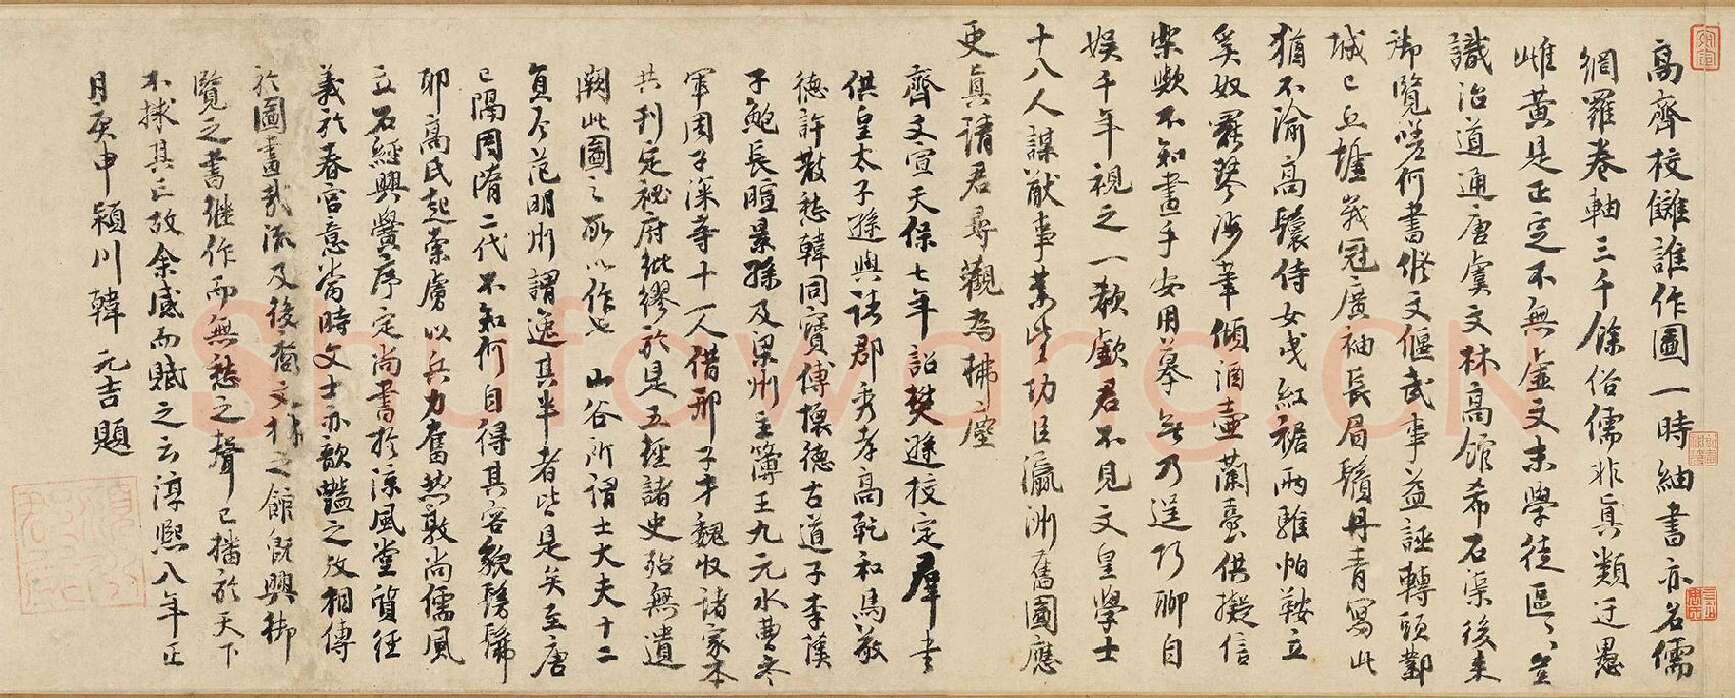 高齊校讎誰作圖一時紬書亦名儒
網羅卷軸三千餘俗儒非真類迂愚
雌黃是正定不無虛文末學徒區區豈
識治道通唐虞文林高館希石渠後來
御覽嗟何書修文偃武事益誣轉頭鄴
城已丘墟峩冠廣袖長眉鬚丹青寫此
猶不渝高鬟侍女曳紅裾兩騅帕鞍立
奚奴罷琴涉筆傾酒壺蘭臺供擬信
樂歟不知畫手安用摹無乃逞巧聊自
娛千年視之一欷歔君不見文皇學士
十八人謀猷事業皆功臣瀛洲舊圖應
更真請君尋觀為拂塵
齊文宣天保七年詔樊遜校定群書
供皇太子遜與諸郡秀孝高乾和馬敬
德許散愁韓同寶傅懷德古道子李漢
子鮑長暄景孫及梁州主簿王九元水曹參
軍周子深等十一人借邢子才魏收諸家本
共刊定祕府紕繆於是五經諸史殆無遺
闕此圖之所以作也 山谷所謂士大夫十二
員今范明州謂逸其半者皆是矣至唐
已隔周隋二代不知何自得其容貌髣髴
耶高氏起索虜以兵力奮然敦尚儒風
立石經興黌序定尚書於涼風堂質經
義於春宮意當時文士亦歆豔之故相傳
於圖畫哉流及後裔文林之館既興御
覽之書繼作而無愁之聲已播於天下
不捄其亡故余感而賦之云淳熙八年正
月庚申潁川韓元吉題
Shufawang.CN